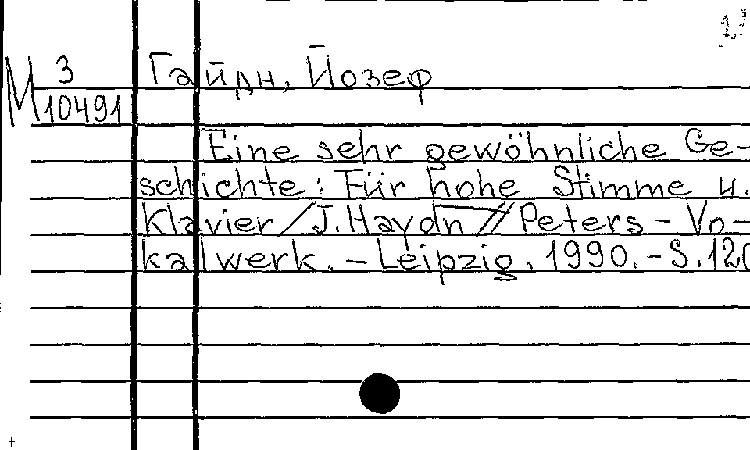 М 3
10491
Гайдн, Йозеф
Eine sehr gewöhnliche Ge-
schichte: Für hohe Stimme u.
Klavier / J. Haydn // Peters - Vo-
kalwerk. - Leipzig, 1990. - S. 120